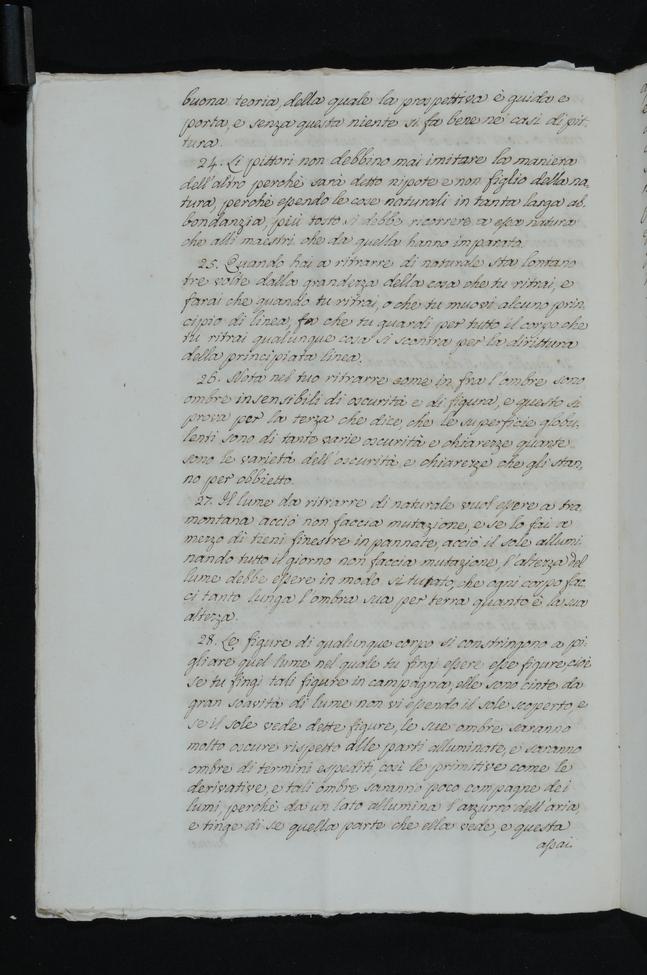 buona teoria, della quale la prospettiva è guida e
porta, e senza questa niente si fa bene ne' casi di pit-
tura.
24. Li pittori non debbino mai imitare la maniera
dell'altro perchè sarà detto nipote e non figlio della na-
tura, perchè essendo le cose naturali in tanta larga ab-
bondanzia, più tosto si debbe ricorrere a essa natura
che alli maestri che da quella hanno imparato.
25. Quando hai a ritrarre di naturale sta lontano
tre volte dalla grandezza della cosa che tu ritrai, e
farai che quando tu ritrai, o che tu muovi alcuno prin-
cipio di linea, fa che tu guardi per tutto il corpo che
tu ritrai qualunque cosa si scontra per la dirittura
della principiata linea.
26. Nota nel tuo ritrarre come in fra l'ombre sono
ombre insensibili di oscurità e di figura, e questo si
prova per la terza che dice, che le superficie globu-
lenti sono di tante varie oscurità e chiarezze quante
sono le varietà dell'oscurità e chiarezze che gli stan-
no per obbietto.
27. Il lume da ritrarre di naturale vuol essere a tra-
montana acciò non faccia mutazione, e se lo fai a
mezzo dì tieni finestre inpannate, acciò il sole allumi-
nando tutto il giorno non faccia mutazione, l'altezza del
lume debbe essere in modo situato, che ogni corpo fac-
ci tanto lunga l'ombra sua per terra quanto è la sua
altezza.
28. Le figure di qualunque corpo si constringono a pi-
gliare quel lume nel quale tu fingi essere esse figure, cioè
se tu fingi tali figure in campagna, elle sono cinte da
gran soavità di lume non vi essendo il sole scoperto, e
se il sole vede dette figure, le sue ombre saranno
molto oscure rispetto alle parti alluminate, e saranno
ombre di termini espediti, così le primitive come le
derivative, e tali ombre saranno poco compagne dei
lumi, perchè da un lato allumina l'azzurro dell'aria,
e tinge di se quella parte che ella vede, e questa
assai